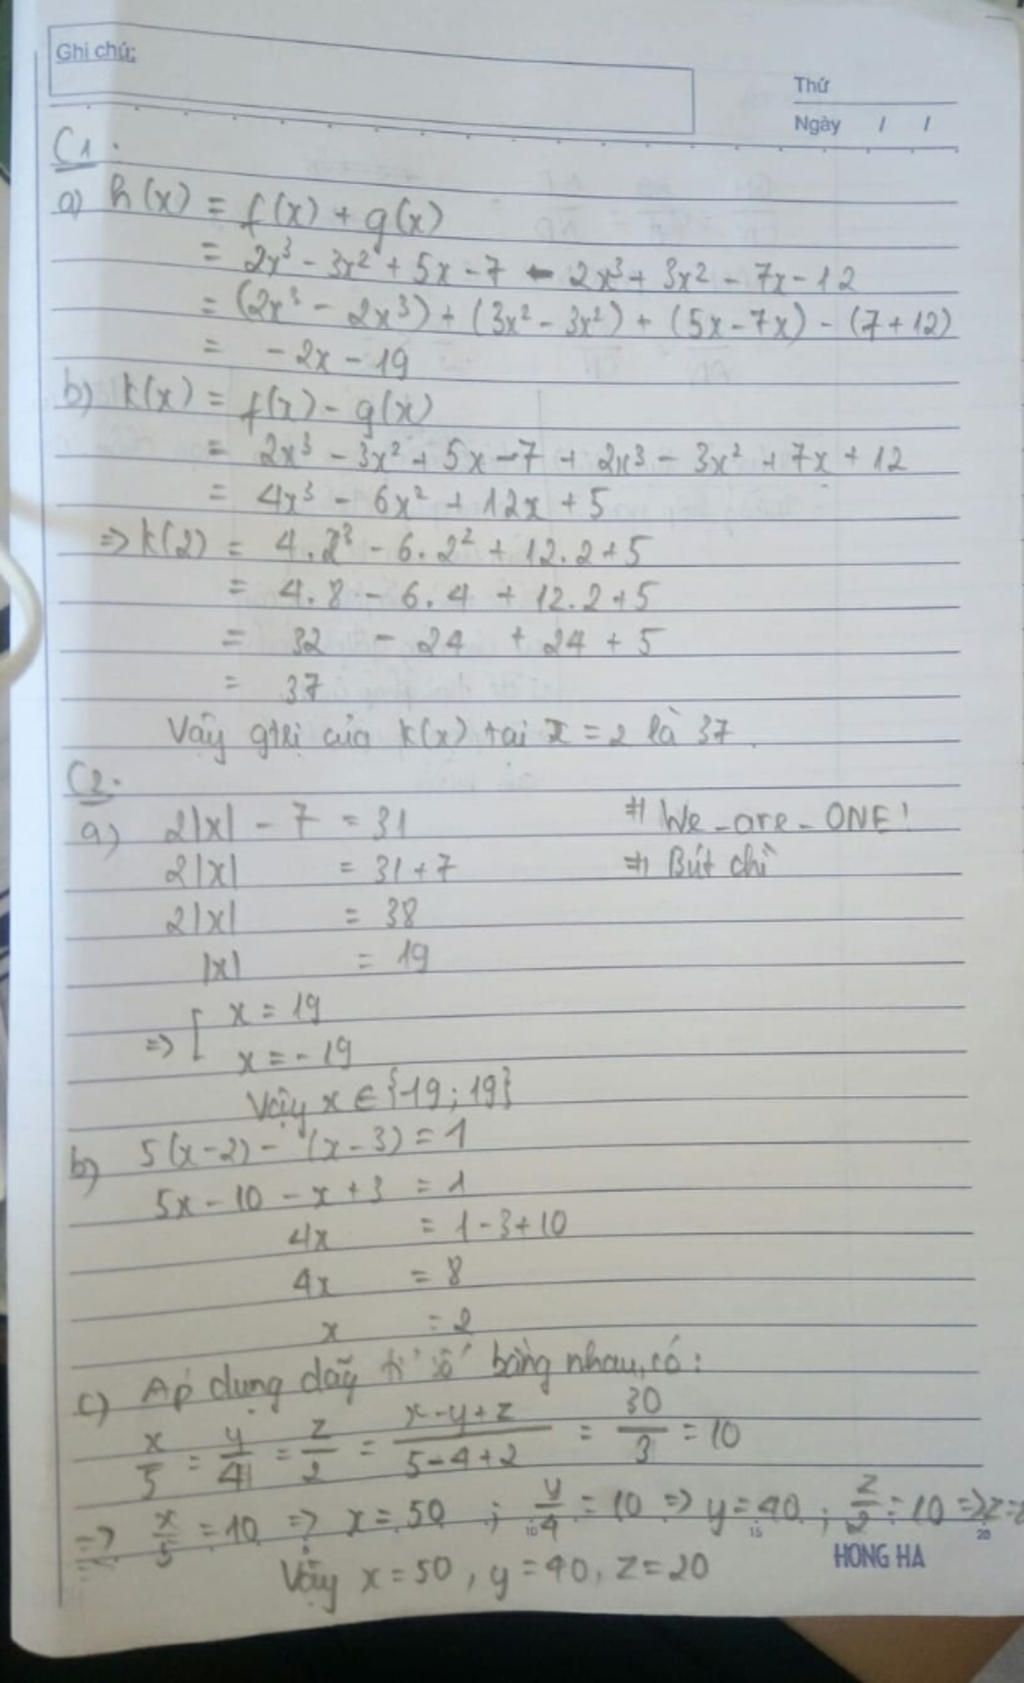 Ghi chú:
Thứ
Ngày / /
C1.
a) h(x) = f(x) + g(x)
= 2x³ - 3x² + 5x - 7 - 2x³ + 3x² - 7x - 12
= (2x³ - 2x³) + (3x² - 3x²) + (5x - 7x) - (7 + 12)
= - 2x - 19
b) k(x) = f(x) - g(x)
= 2x³ - 3x² + 5x - 7 + 2x³ - 3x² + 7x + 12
= 4x³ - 6x² + 12x + 5
=> k(2) = 4.2³ - 6.2² + 12.2 + 5
= 4.8 - 6.4 + 12.2 + 5
= 32 - 24 + 24 + 5
= 37
Vậy gtrị của k(x) tại x = 2 là 37.
C2.
a) 2|x| - 7 = 31 # We_are_ONE!
2|x| = 31 + 7 # Bút chì
2|x| = 38
|x| = 19
=> [ x = 19
x = - 19
Vậy x ∈ {-19; 19}
b) 5(x - 2) - (x - 3) = 1
5x - 10 - x + 3 = 1
4x = 1 - 3 + 10
4x = 8
x = 2
c) Áp dụng dãy tỉ số bằng nhau, có:
x/5 = y/4 = z/2 = (x - y + z)/(5 - 4 + 2) = 30/3 = 10
=> x/5 = 10 => x = 50 ; y/4 = 10 => y = 40 ; z/2 = 10 => z =
10 15 20
HONG HA
Vậy x = 50, y = 40, z = 20